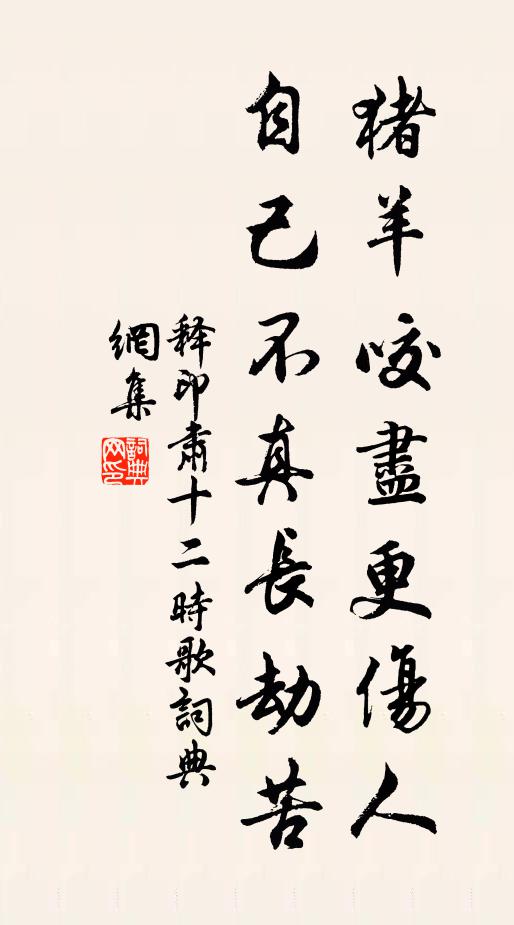 猪羊咬盡更傷人
自己不真長劫苦
释印肅十二時歌詞典
網集
詞典网印